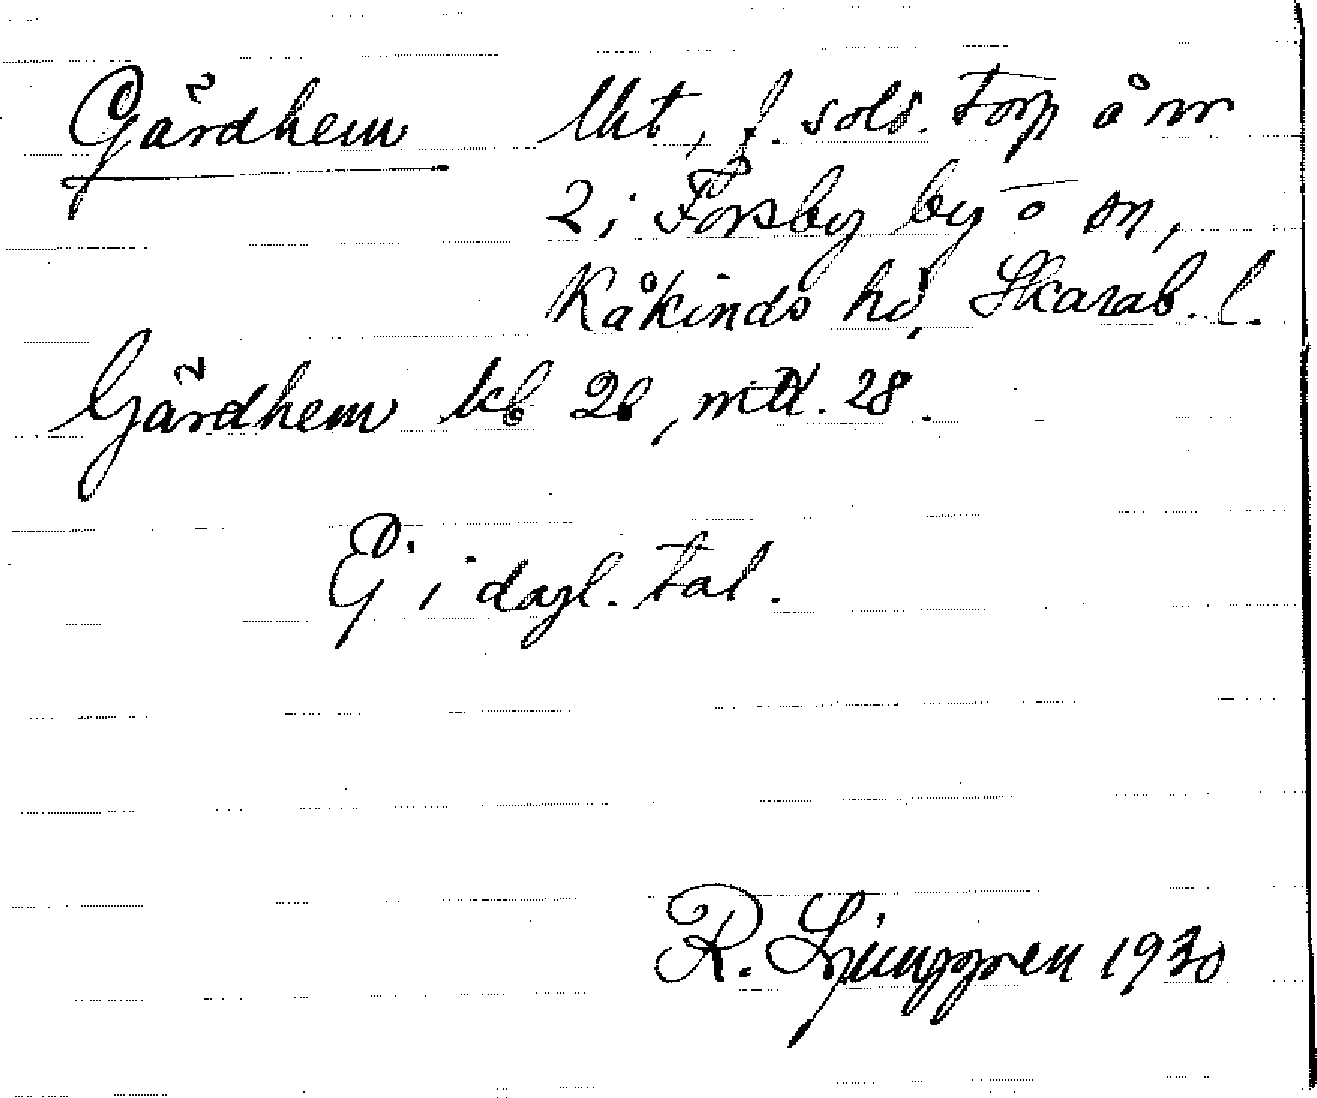 Gårdhem lht, f. sold. torp å nr
2 i Forsby by o sn,
Kåkinds hd, Skarab. l.
Gårdhem kb 28, mtl. 28.
Ej i dagl. tal.
R. Ljunggren 1930